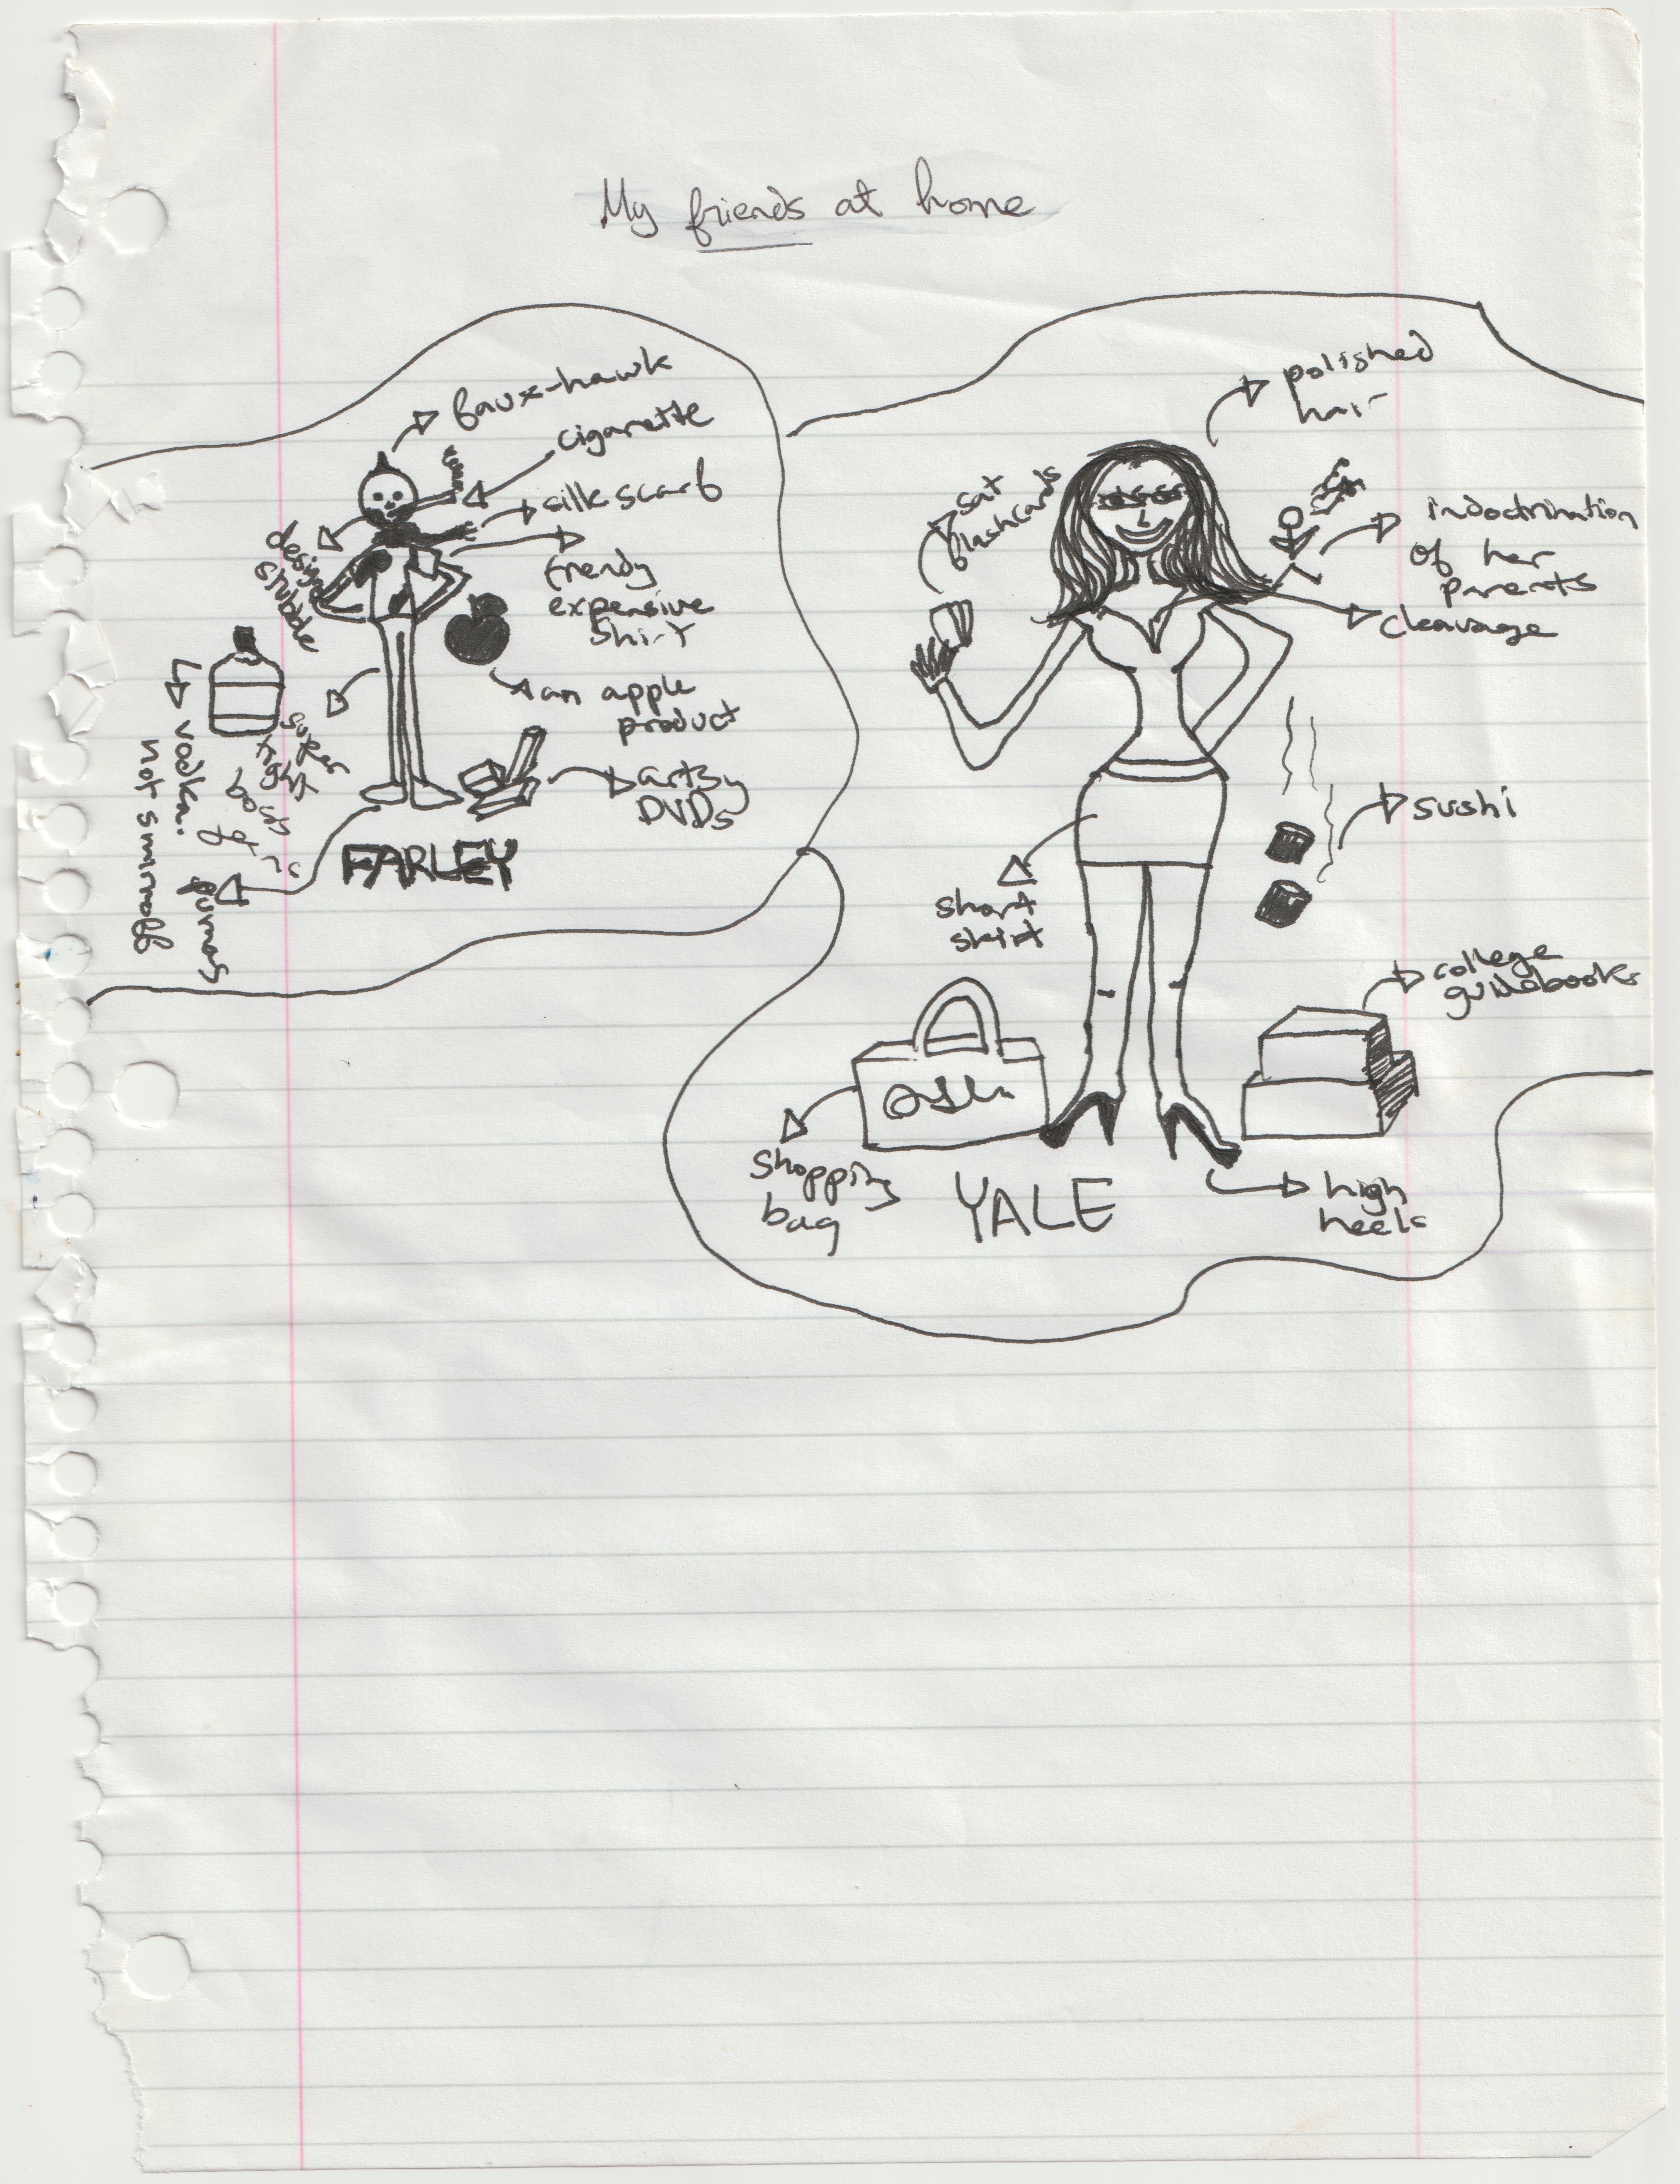 My friends at home
faux-hawk
cigarette
silk scarf
trendy
expensive
shirt
an apple
product
artsy
DVDs
stubble
super
tight
vodka.
not smirnoff
pumas
FARLEY
polished
hair
sat
flashcards
indoctrination
of her
parents
cleavage
sushi
short
skirt
college
guidebooks
shopping
bag
YALE
high
heels